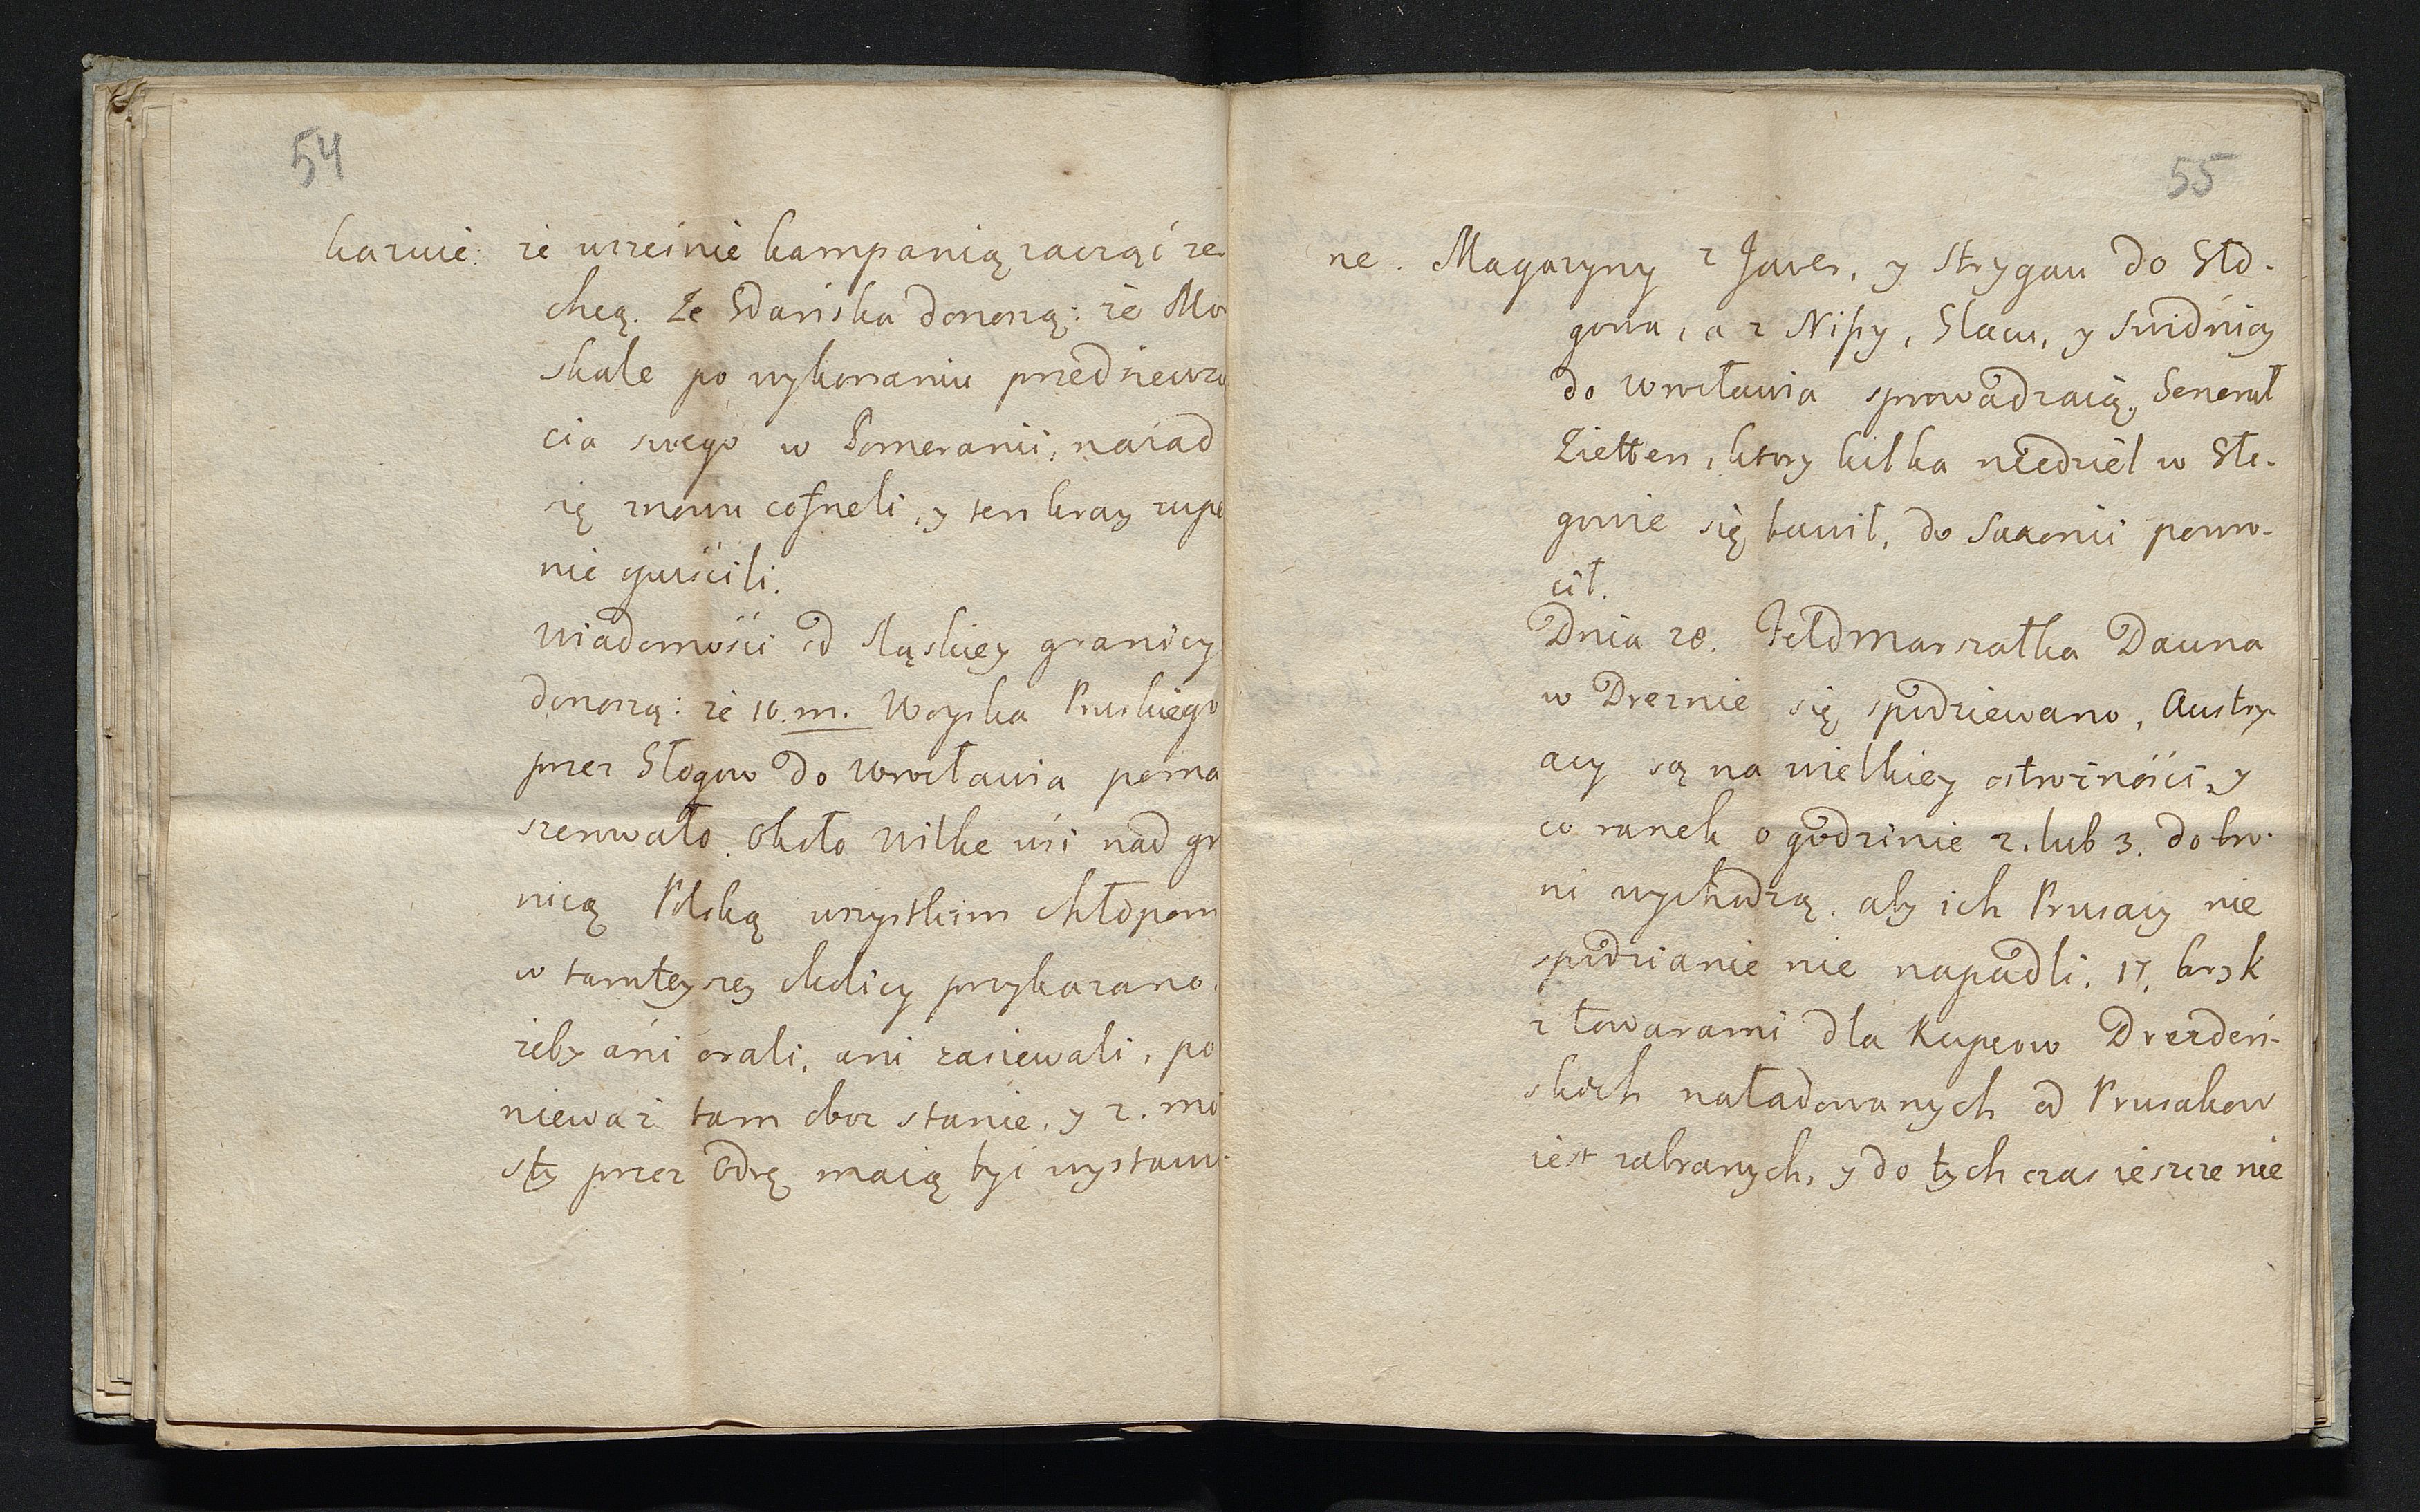 54
kazuie: że wcześnie kampanią zacząć ze
chcą. Ze Gdańska donoszą: że Mo
skale po wykonaniu przedsiewzię
cia swego w Pomeranii, nazad
się znowu cofneli, y ten kray zupe
nie opuścili.
Wiadomości od Sląskiey granicy
donoszą: że 10.m. Woyska Pruskiego
przez Głogow do Wrocławia poma
szerowało. Około Wilke wsi nad gr
nicą Polską wszystkim chłopom
w tamteyszey okolicy przykazano.
żeby ani orali, ani zasiewali, po
nieważ tam oboz stanie, y 2. mo
sty przez Odrę maią być wystaw-
55
ne. Magazyny z Javer, y Strygau do Gło-
gowa, a z Nissy, Glacu, y Swidnicy
do Wrocławia sprowadzaią. General
Zietten, ktory kilka niedziel w Gło-
gowie się bawił, do Saxonii powro-
cił.
Dnia 28. Feldmarszałka Dauna
w Dreznie się spodziewano, Austry-
acy są na wielkiey ostrożności, y
co ranek o godzinie 2. lub 3. do bro-
ni wychodzą. aby ich Prusacy nie
spodzianie nie napadli. 17. bryk
z towarami dla Kupcow Drezdeń-
skich naładowanych od Prusakow
iest zabranych, y do tych czas ieszcze nie